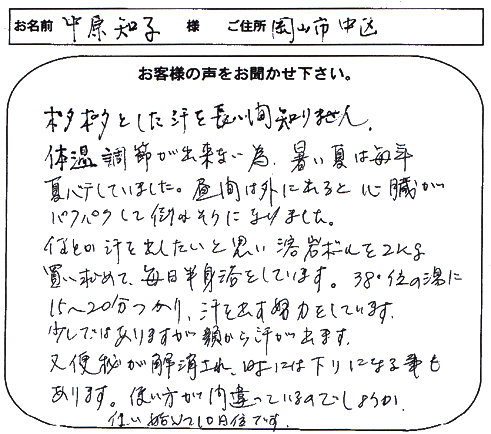 お名前 中原知子 様 ご住所 岡山市中区
お客様の声をお聞かせ下さい。
ポタポタとした汗を長い間知りません。
体温調節が出来ない為、暑い夏は毎年
夏バテしていました。昼間は外に出ると心臓が
パクパクして倒れそうになりました。
何とか汗を出したいと思い溶岩ボールを2kg
買い求めて、毎日半身浴をしています。38°位の湯に
15〜20分つかり、汗を出す努力をしています。
少しではありますが額から汗が出ます。
又便秘が解消され、時には下りになる事も
あります。使い方が間違っているのでしょうか。
使い始めて10日位です。